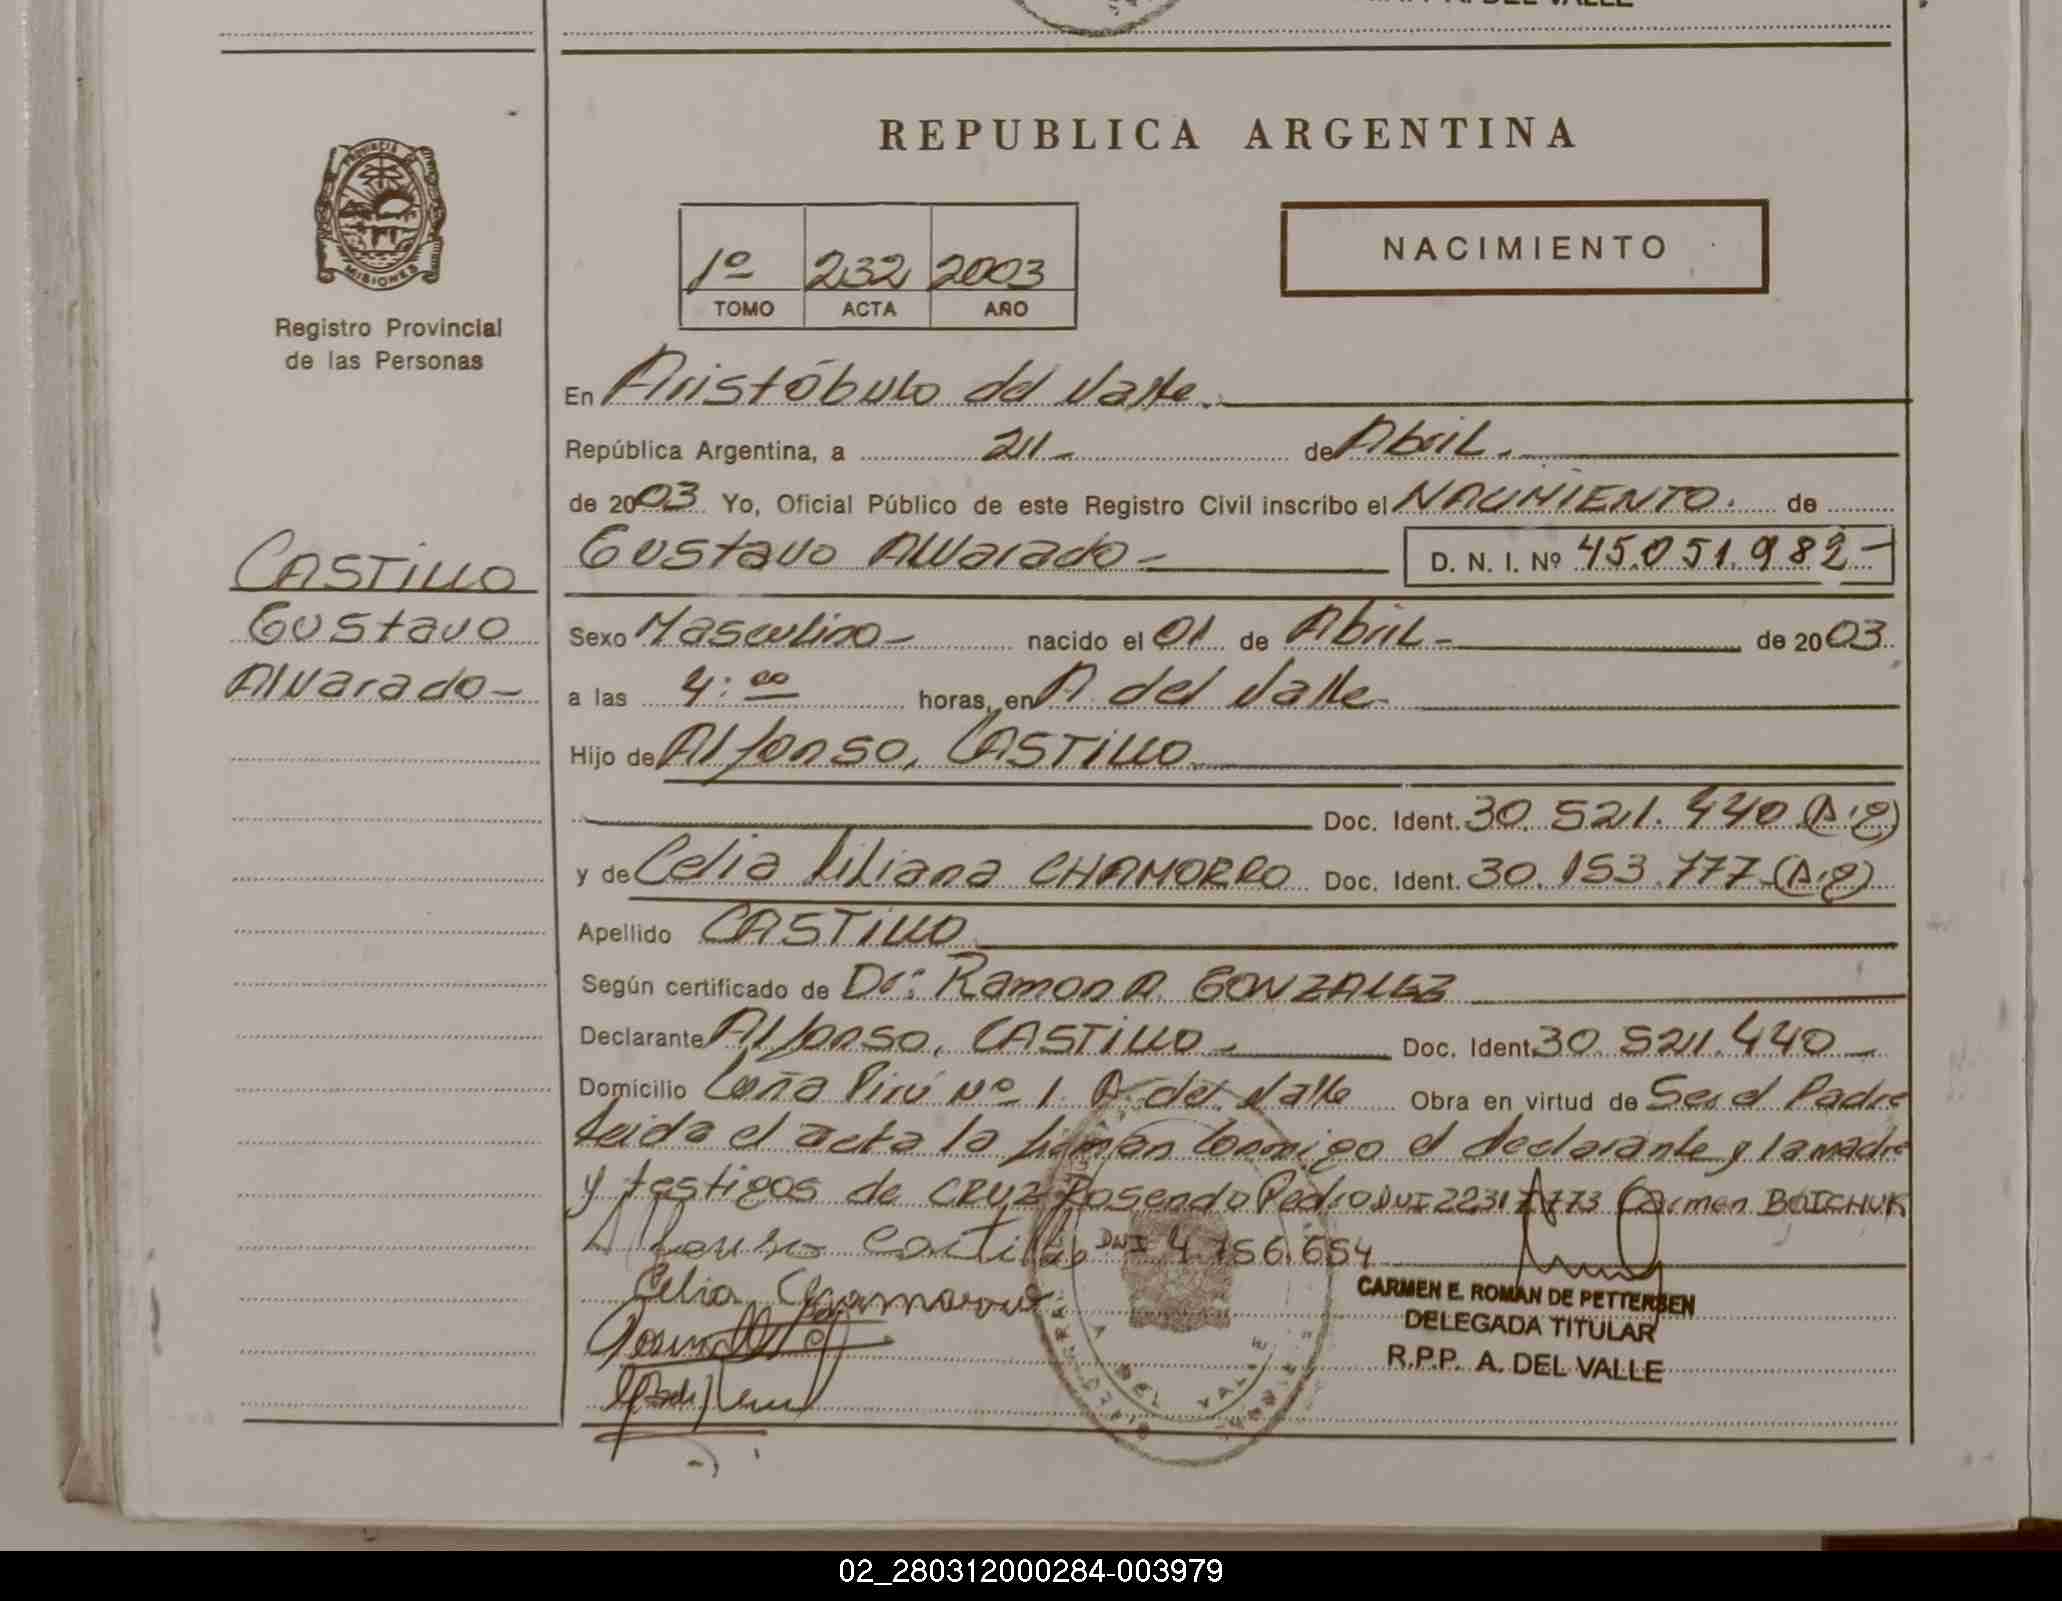 DEL VALLE
REPUBLICA ARGENTINA
PROVINCIA DE
MISIONES
Registro Provincial
de las Personas
1º 232 2003
TOMO ACTA AÑO
NACIMIENTO
En Aristóbulo del Valle.
República Argentina, a 21 de Abril.
de 2003 Yo, Oficial Público de este Registro Civil inscribo el NACIMIENTO. de
Gustavo Alvarado D. N. I. Nº 45.051.982
CASTILLO
Gustavo
Alvarado
Sexo Masculino nacido el 01 de Abril de 2003
a las 4:00 horas, en A. del Valle
Hijo de Alfonso, CASTILLO
Doc. Ident. 30.521.440
y de Celia Liliana CHAMORRO Doc. Ident. 30.153.777
Apellido CASTILLO
Según certificado de Dr: Ramon A. GONZALEZ
Declarante Alfonso, CASTILLO Doc. Ident. 30.521.440
Domicilio Cuña Pirú Nº 1. A. del Valle Obra en virtud de Ser el Padre
Leida el acta la firman conmigo el declarante y la madre
y testigos de CRUZ Rosendo Pedro DNI Carmen BOICHUK
Alfonso Castillo DNI 4.156.654
Celia Chamorro
CARMEN E. ROMAN DE PETTERSEN
DELEGADA TITULAR
R.P.P. A. DEL VALLE
A. DEL VALLE
02_280312000284-003979